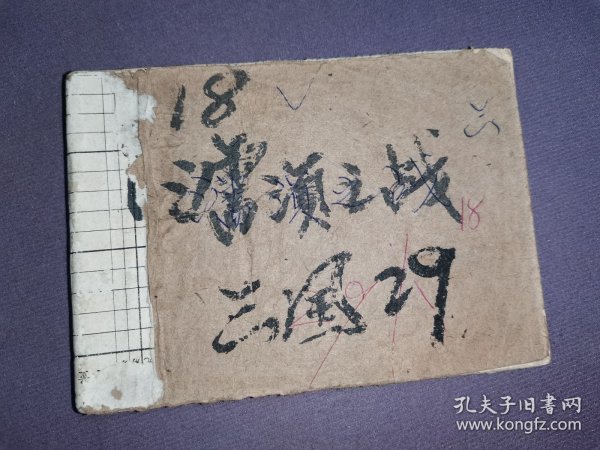 18
三
濡须之战
18
三国 29
孔夫子旧书网
www.kongfz.com